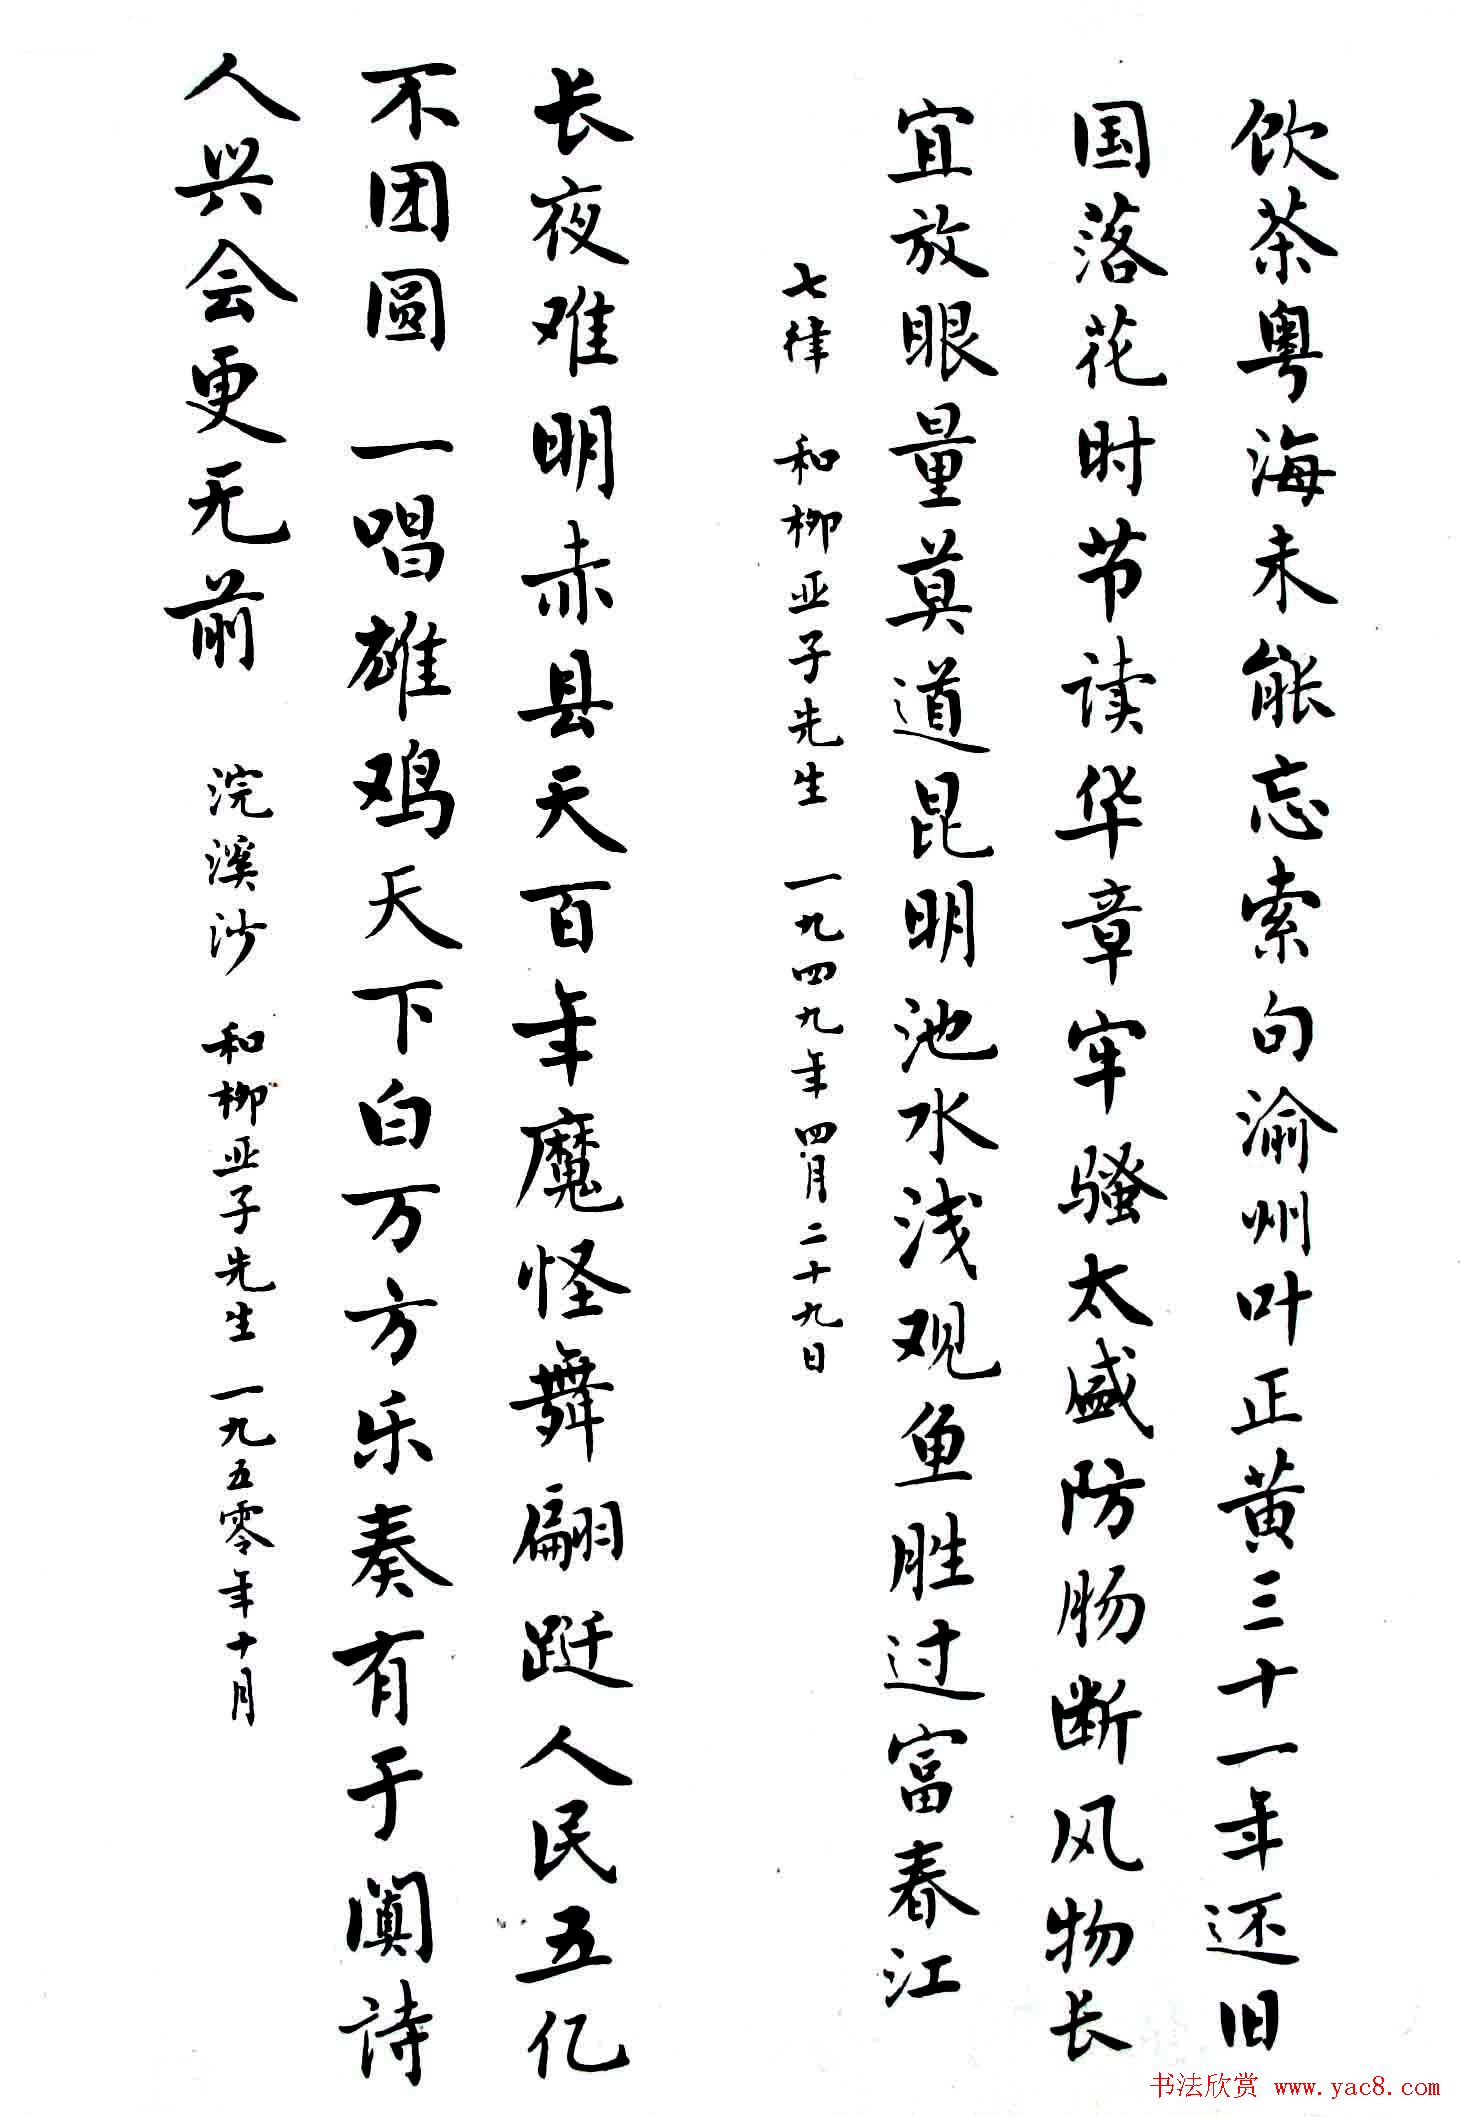 饮茶粤海未能忘索句渝州叶正黄三十一年还旧
国落花时节读华章牢骚太盛防肠断风物长
宜放眼量莫道昆明池水浅观鱼胜过富春江
七律 和柳亚子先生 一九四九年四月二十九日
长夜难明赤县天百年魔怪舞翩跹人民五亿
不团圆一唱雄鸡天下白万方乐奏有于阗诗
人兴会更无前 浣溪沙 和柳亚子先生 一九五零年十月
书法欣赏 www.yac8.com